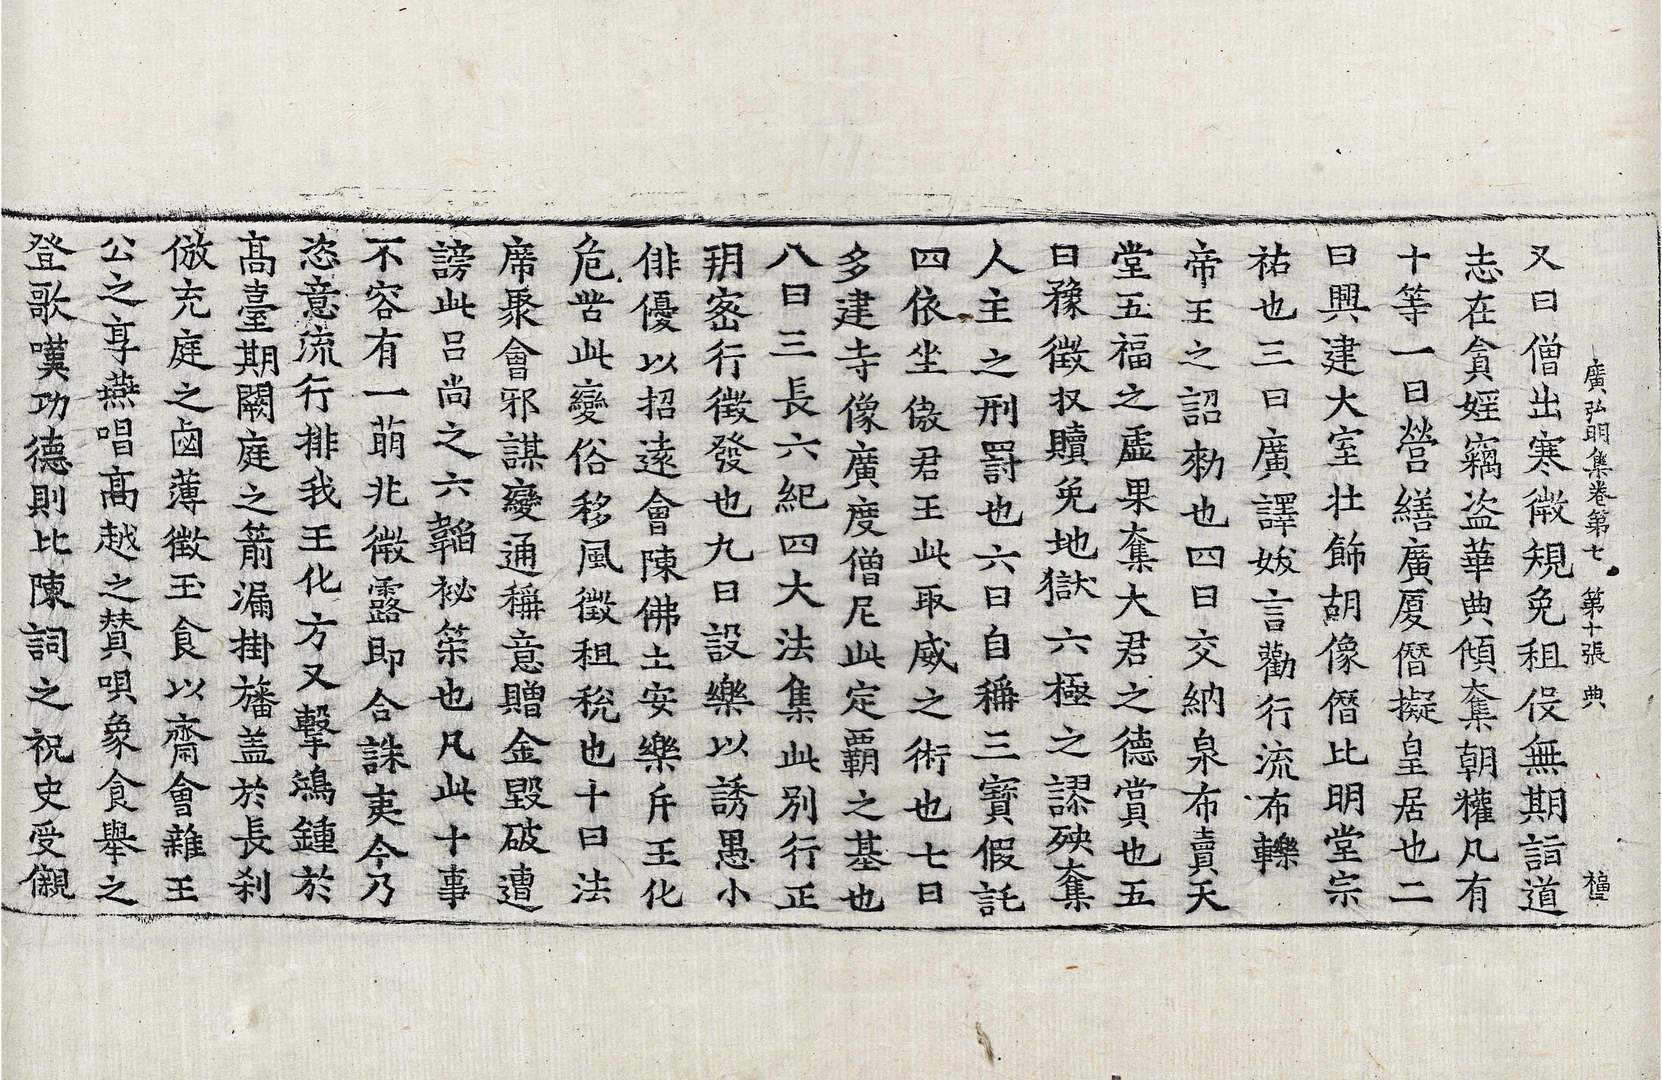 廣弘明集卷第七 第十張 典
又曰僧出寒微規免租役無期詣道
志在貪婬竊盜華典傾奪朝權凡有
十等一曰營繕廣厦僭擬皇居也二
曰興建大室壯飾胡像僭比明堂宗
祐也三曰廣譯妖言勸行流布轢
帝王之詔勑也四曰交納泉布賣天
堂五福之虛果奪大君之德賞也五
曰豫徵收贖免地獄六極之謬殃奪
人主之刑罸也六曰自稱三寶假託
四依坐傲君王此取威之術也七曰
多建寺像廣度僧尼此定覇之基也
八曰三長六紀四大法集此別行正
玥密行徵發也九曰設樂以誘愚小
俳優以招遠會陳佛土安樂斥王化
危苦此變俗移風徵租稅也十曰法
席聚會邪謀變通稱意贈金毀破遭
謗此呂尚之六韜祕筞也凡此十事
不容有一萠兆微露即合誅夷今乃
恣意流行排我王化方又擊鴻鍾於
高臺期闕庭之箭漏掛旛盖於長刹
倣充庭之鹵薄徵玉食以齋會雜王
公之享燕唱高越之賛唄象食舉之
登歌嘆功德則比陳詞之祝史受儭